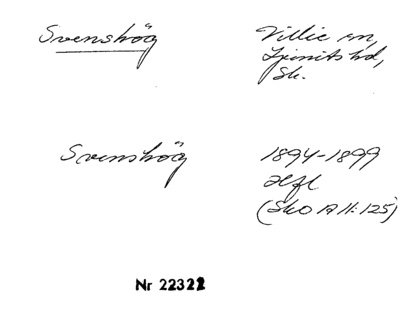 Svenshög
Villie sn,
Ljunits hd,
Sk.
Svenshög
1894-1899
Hfl
(SkO A 11:125)
Nr 22322